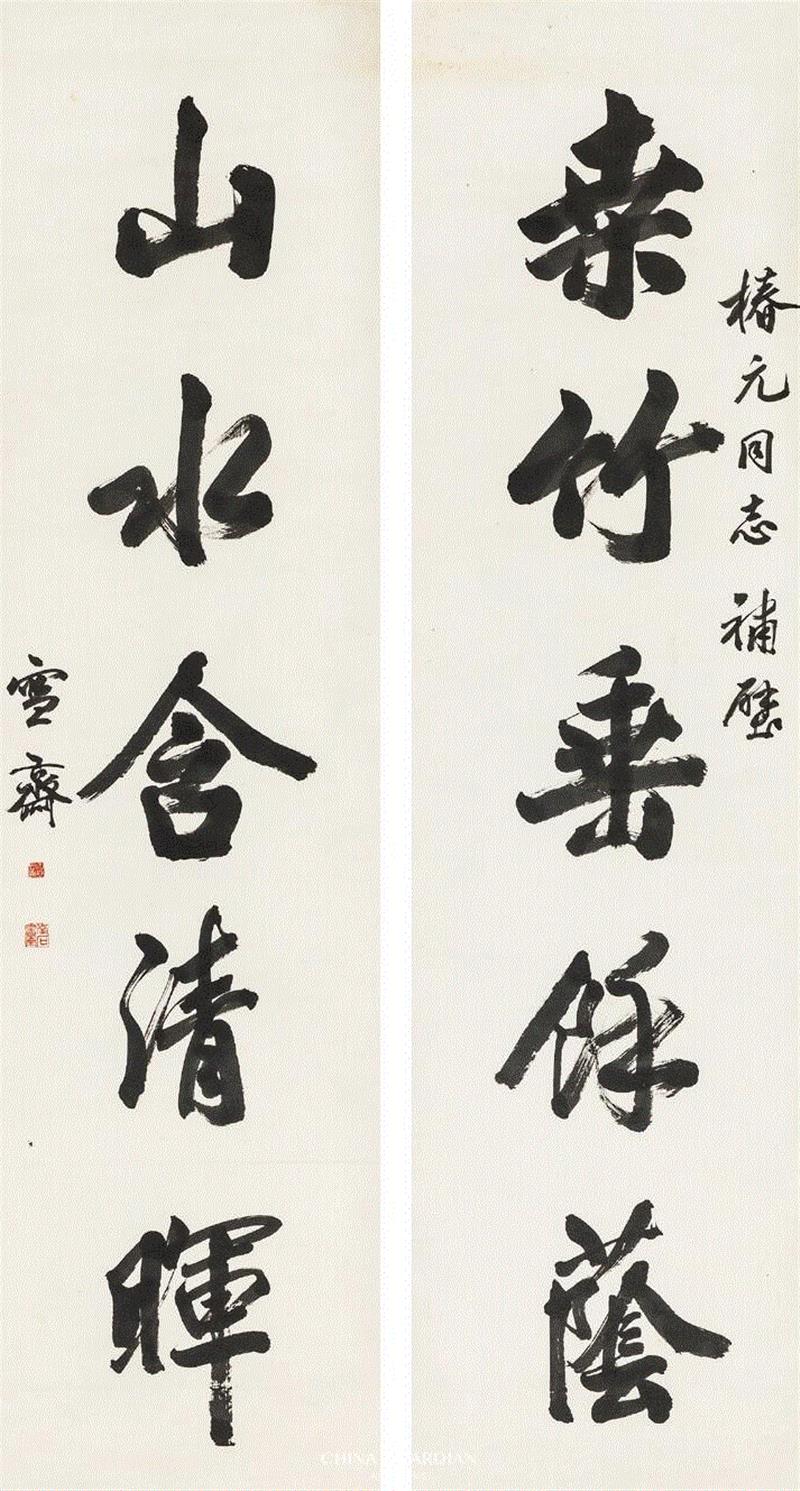 椿元同志補壁
桒竹垂餘蔭
山水含清暉
雪齋
CHINA GUARDIAN